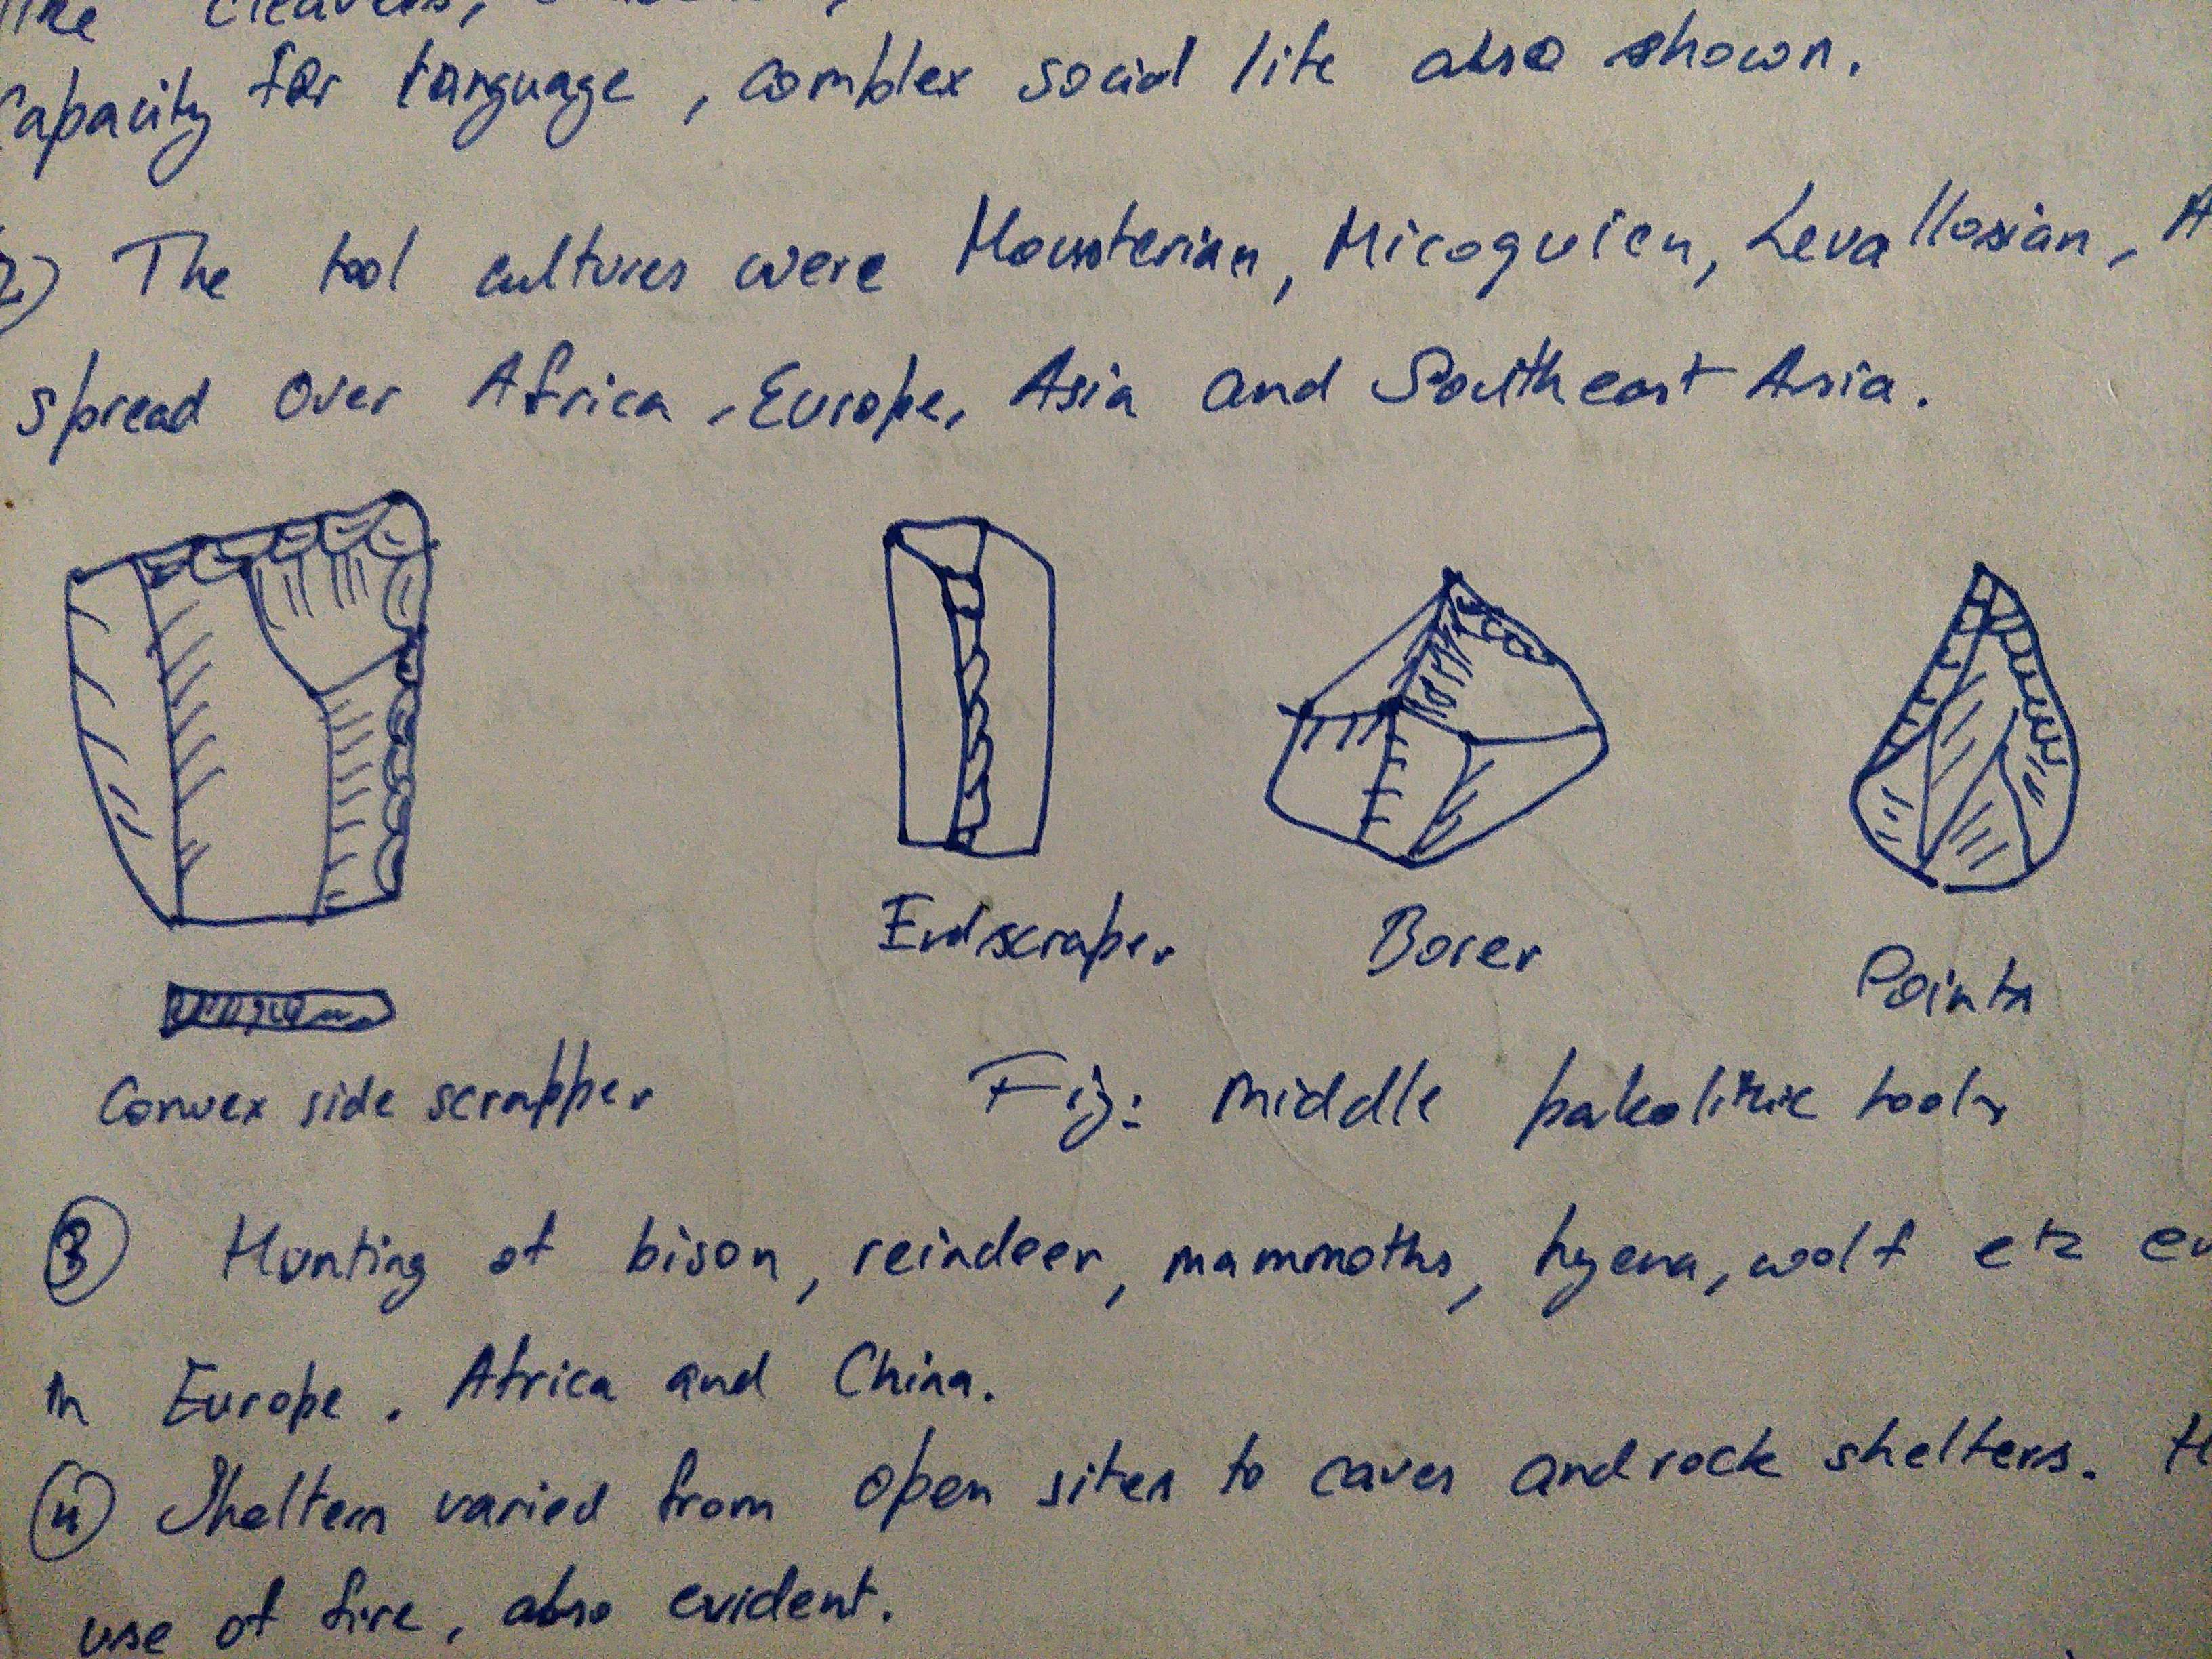 like cleavers,
Capacity for language, complex social life also shown.
2) The tool cultures were Mousterian, Micoquien, Levallosian, A
spread over Africa, Europe, Asia and Southeast Asia.
Endscraper
Borer
Points
Convex side scrapper
Fig: Middle paleolithic tools
3 Hunting of bison, reindeer, mammoths, hyena, wolf etc ev
in Europe, Africa and China.
4 Shelters varied from open sites to caves and rock shelters. H
use of fire, also evident.